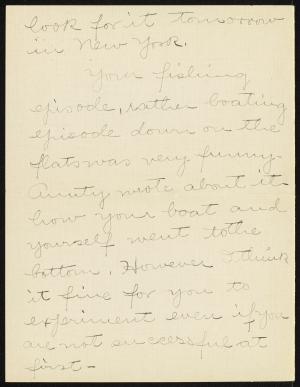 look for it tomorrow
in New York.
Your fishing
episode, rather boating
episode down on the
flats was very funny.
Aunty wrote about it
how your boat and
yourself went to the
bottom. However I think
it fine for you to
experiment even if you
are not successful at
first -